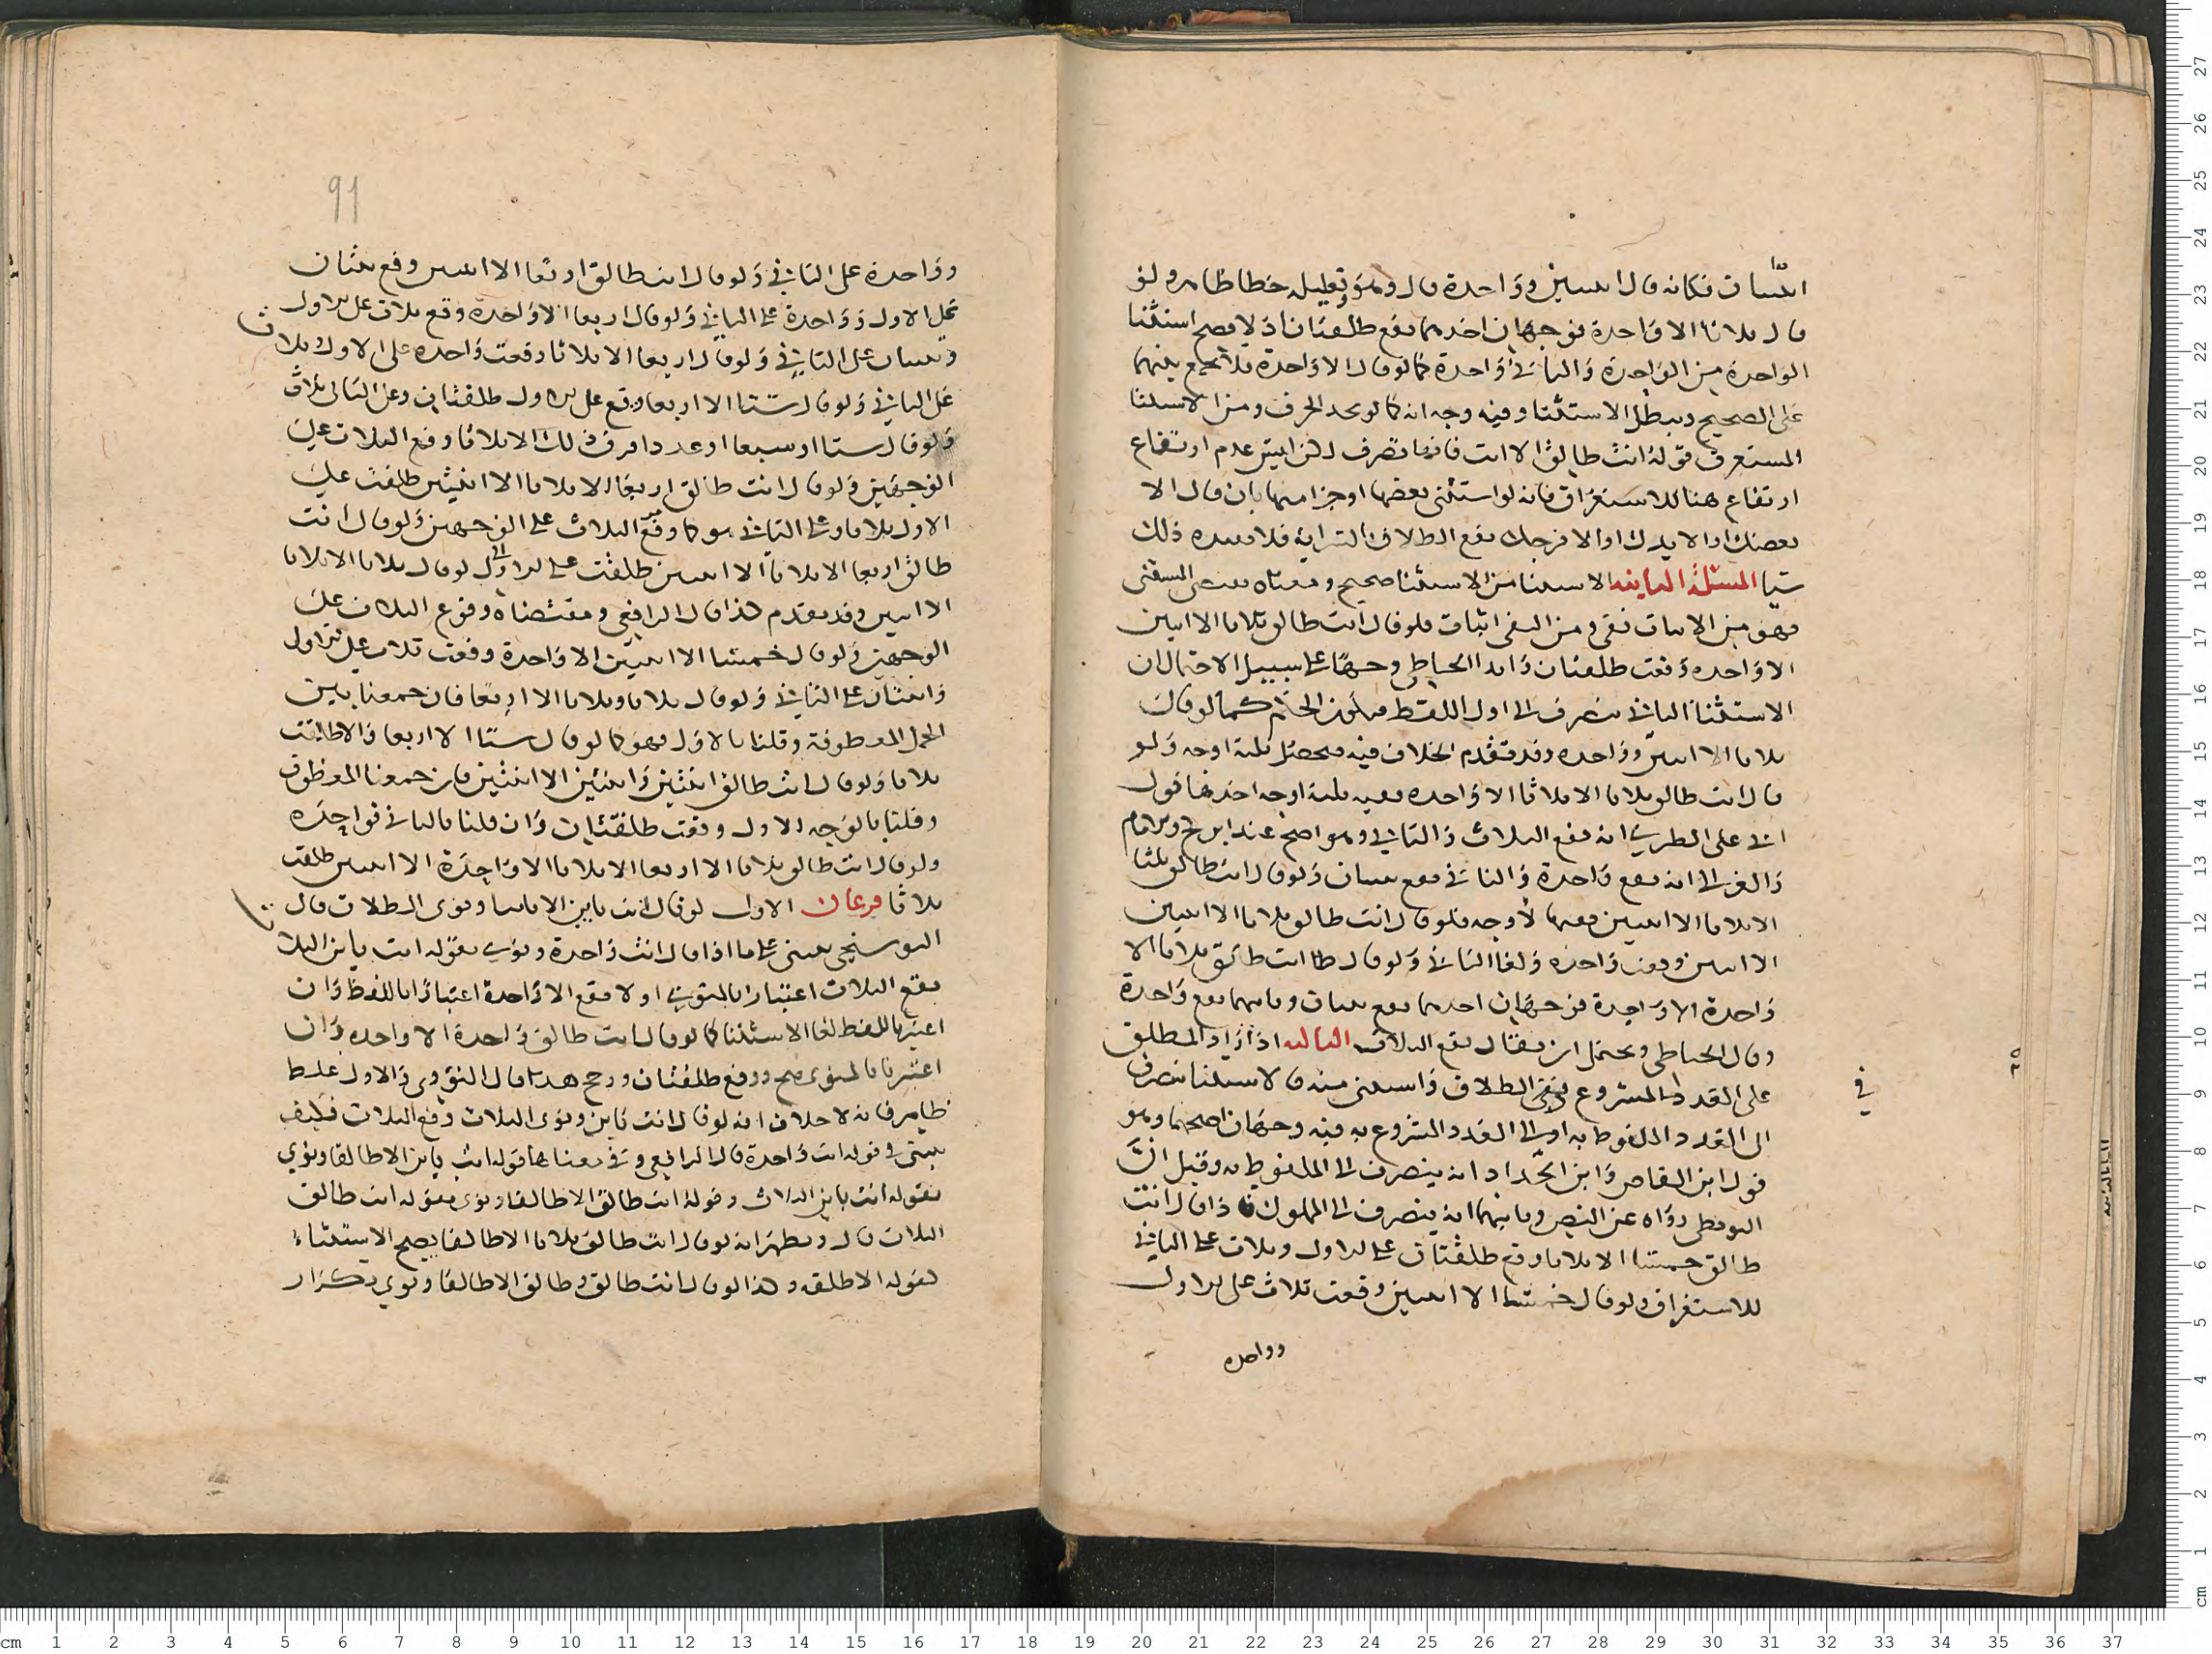 فكانه قال اثنتين وواحدة قال وهو تعليله خطا ظاهر ولو
قال ثلاثا الا واحدة فوجهان احدهما يقع طلقتان اذ لا يصح استثنا
الواحدة من الواحدة والثاني واحدة كما لو قال الا واحدة فلا يجمع بينهما
على الصحيح ويبطل الاستثنا وفيه وجه انه كما لو بحد الحرف ومن الاستثنا
المستغرق قوله انت طالق الا انت فانها تصرف لكن ليس عدم ارتفاع
ارتفاع هنا للاستغراق فانه لو استثنى بعضها او جزا منها بان قال الا
بعضك او الا يدك او الا فرجك يقع الطلاق السراية فلا يفيده ذلك
شيا المسئلة الثانية الاستثنا من الاستثنا صحيح ومعناه
فهو من الاثبات نفي ومن النفي اثبات فلو قال انت طالق ثلاثا الا اثنتين
الا واحده وقعت طلقتان وابدا الحناطي وجها على سبيل الاحتمال ان
الاستثنا الثاني ينصرف الى اول اللفظ فيكون الحكم كما لو قال
ثلاثا الا اثنتين وواحده وقد تقدم الخلاف فيه فيحصل ثلثة اوجه ولو
قال انت طالق ثلاثا الا ثلاثا الا واحده ففيه ثلثة اوجه احدها قول
ابي على الطبري انه يقع الثلاث والثاني وهو اصح عند ابن كج والامام
والغزالي انه يقع واحدة والثالث يقع ثنتان ولو قال انت طالق ثلثا
الا ثلاثا الا اثنتين ففيها الاوجه فلو قال انت طالق ثلاثا الا اثنتين
الا اثنتين وقعت واحده ولغا الثاني ولو قال انت طالق ثلاثا الا
واحدة الا واحدة فوجهان احدهما يقع ثنتان وثانيهما يقع واحدة
وقال الحناطي ويحتمل ان يقال يقع الثلاث الثالثه اذا زاد المطلق
في
على العدد المشروع في الطلاق واستثنى منه فالاستثنا ينصرف
الى العدد الملفوظ به او الى العدد المشروع به فيه وجهان اصحهما وهو
قول ابن القاص وابن الحداد انه ينصرف الى الملفوظ به وقيل ان
البويطي رواه عن النص وثانيهما انه ينصرف الى المملوك فاذا قال انت
طالق خمستا الا ثلاثا وقع طلقتان على الاول وثلاث على الثاني
للاستغراق ولو قال خمسا الا اثنتين وقعت ثلاث على الاول
وواحده
91
وواحدة على الثاني ولو قال انت طالق اربعا الا اثنتين وقع ثنتان
على الاول وواحدة على الثاني ولو قال اربعا الا واحدة وقع ثلاث على الاول
وثنتان على الثاني ولو قال اربعا الا ثلاثا وقعت واحده على الاول وثلاث
على الثاني ولو قال ستا الا اربعا وقع على الاول طلقتان وعلى الثاني ثلاث
ولو قال ستا او سبعا او عددا فوق ذلك الا ثلاثا وقع الثلاث على
الوجهين ولو قال انت طالق اربعا الا ثلاثا الا اثنتين طلقت على
الاول ثلاثا وعلى الثاني هو كما وقع الثلاث على الوجهين ولو قال انت
طالق اربعا الا ثلاثا الا اثنتين طلقت على الاول لو قال ثلاثا الا ثلاثا
الا اثنتين وقد تقدم هذا قال الرافعي ومقتضاه وقوع الثلاث على
الوجهين ولو قال خمسا الا اثنتين الا واحدة وقعت ثلاث على الاول
واثنتان على الثاني ولو قال ثلاثا وثلاثا الا اربعا فان جمعنا بين
الجمل المعطوفة وقلنا بالاول فهو كما لو قال ستا الا اربعا والا طلقت
ثلاثا ولو قال انت طالق اثنتين واثنتين الا اثنتين فان جمعنا المعطوف
وقلنا بالوجه الاول وقعت طلقتان وان قلنا بالثاني فواحدة
ولو قال انت طالق ثلاثا الا اربعا الا ثلاثا الا واحدة الا اثنتين طلقت
ثلاثا فرعان الاول لو قال انت باين الا باينا ونوى الطلاث قال
البوسنجي يبنى على ما اذا قال انت واحدة ونوى بقوله انت باين الثلا
يقع الثلاث اعتبارا بالمنوي او لا يقع الا واحدة اعتبارا باللفظ وان
اعتبرنا اللفظ لغا الاستثنا كما لو قال انت طالق واحدة الا واحده وان
اعتبرنا بالمنوى صح ووقع طلقتان ورجح هذا قال النووي والاول غلط
ظاهر فانه لا خلاف انه لو قال انت باين ونوى الثلاث وقع الثلاث فكيف
يبنى وقوله انت واحدة قال الرافعي وفي معناها قوله انت باين الا طالقا ونوي
بقوله انت باين الثلاث وقوله انت طالق الا طالقا ونوى بقوله انت طالق
الثلاث قال ونظيره انه لو قال انت طالق ثلاثا الا طالقا يصح الاستثناء
لقوله الا طلقه وكذا لو قال انت طالق وطالق الا طالقا ونوي بكرار